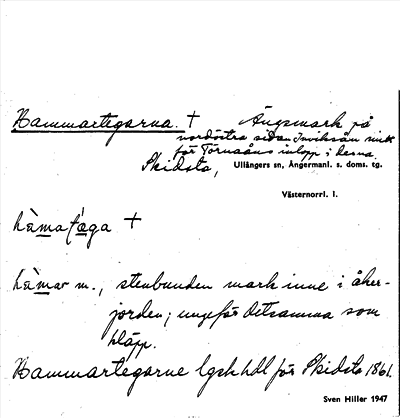 Hammartegarna. + Ängsmark på
nordöstra sidan Inviksån mitt
för Törnaåns inlopp i desna.
Skidsta, Ullångers sn, Ångermanl. s. doms. tg.
Västernorrl. l.
hàmafæga +
hàmar m., stenbunden mark inne i åker-
jorden; ungefär detsamma som
kläpp.
Hammartegarne lgskhdl för Skidsta 1861.
Sven Hiller 1947